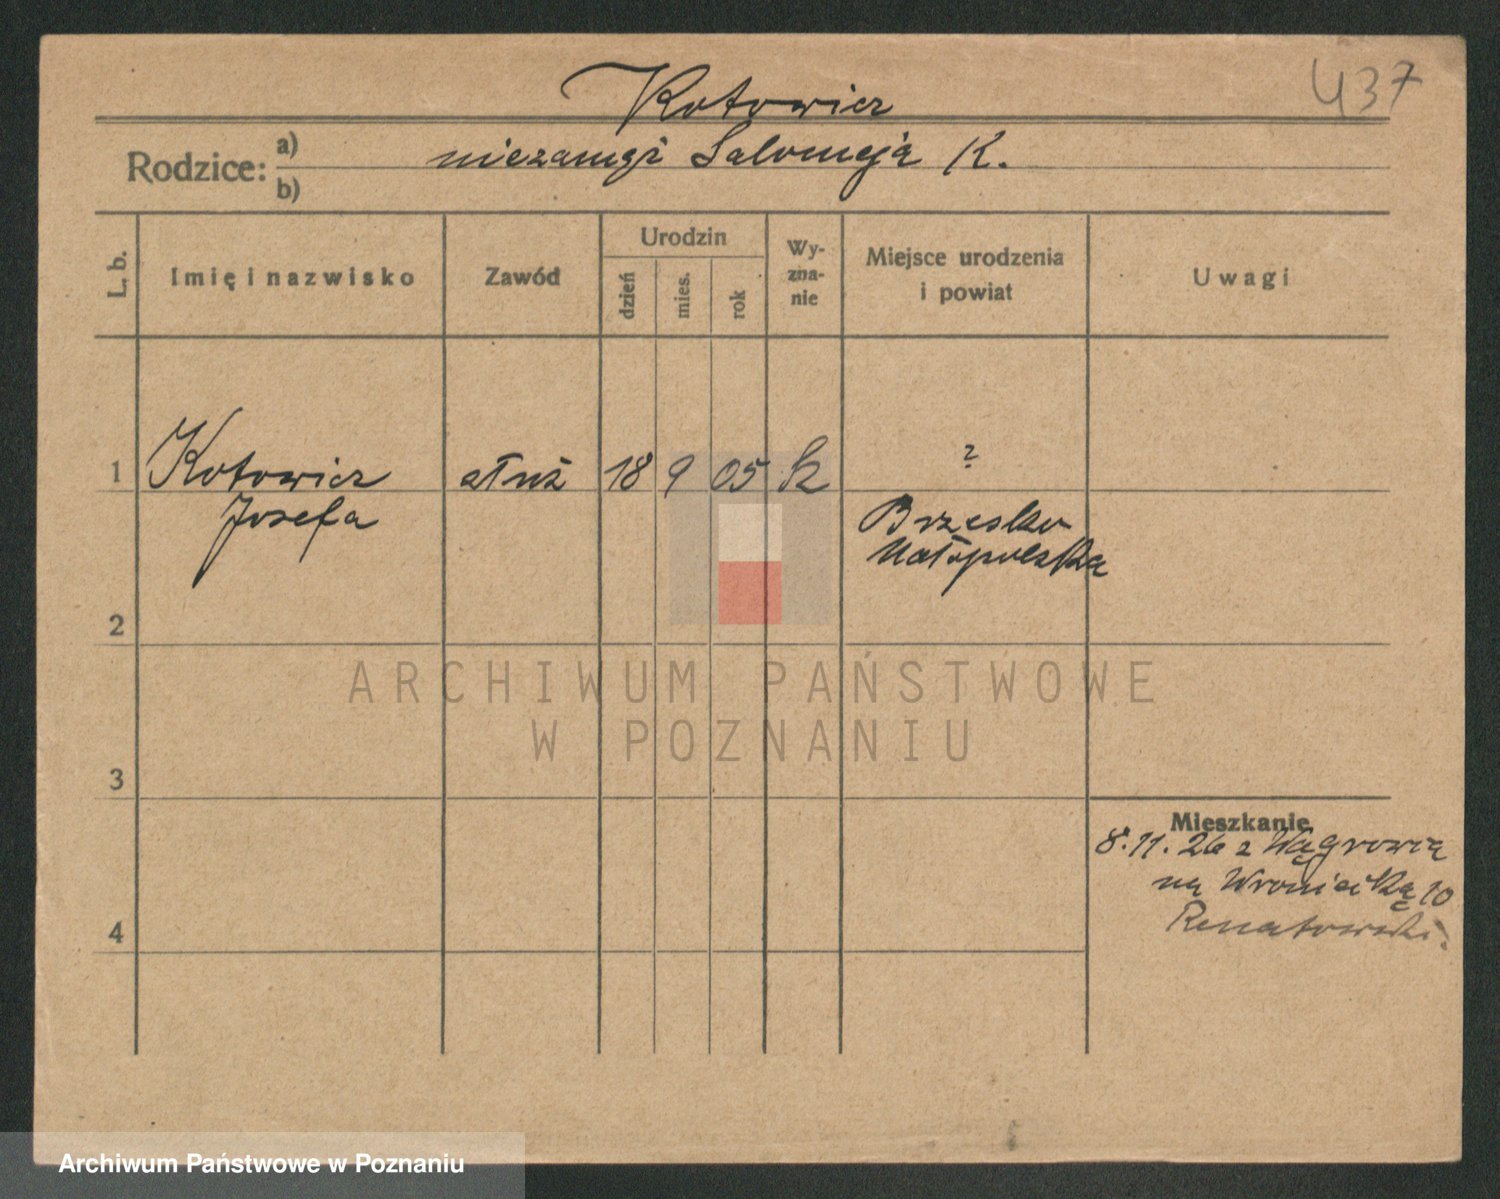 437
Kotowicz
Rodzice: a) niezamęż Salomeja K.
b)
L. b.
Imię i nazwisko
Zawód
Urodzin
dzień
mies.
rok
Wy-
zna-
nie
Miejsce urodzenia
i powiat
Uwagi
1 Kotowicz służ 18 9 05 k ?
Josefa
Brzesko
Małopolska
2
3
4
Mieszkanie
8.11.26 z Wągrowca
na Wroniecką 10
Renatowski.
ARCHIWUM PAŃSTWOWE
W POZNANIU
Archiwum Państwowe w Poznaniu